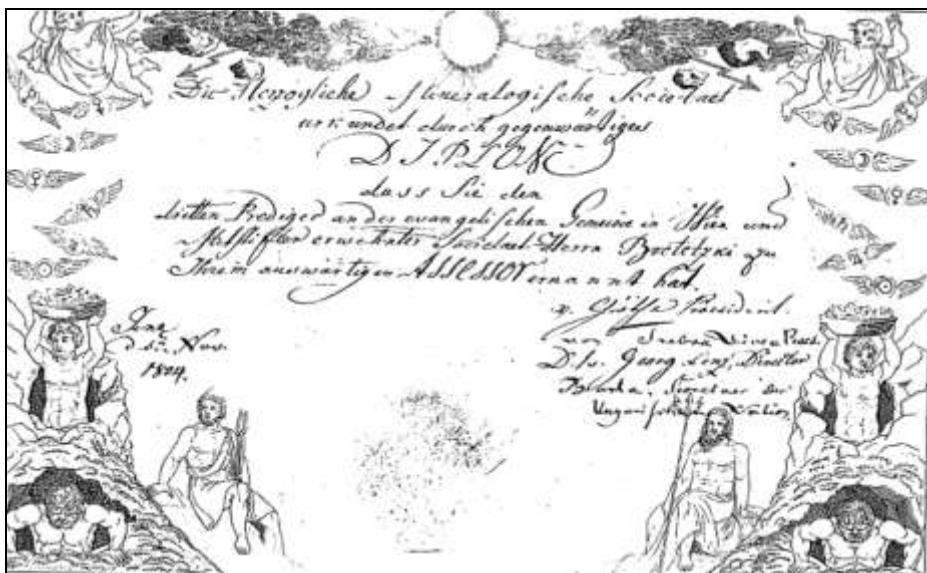 Die Herzogliche Mineralogische Societaet
urkundet durch gegenwärtiges
DIPLOM
dass Sie den
dritten Prediger an der evangelischen Gemeine in Wien und
Mitstifter erwehnter Societaet Herrn Bredetzki zu
Ihrem auswärtigen Assessor ernannt hat.
v. Göthe Praesident.
Jena
d. Nov.
1804.
von Trebra Vice Praes.
D. Georg Lenz, Director
Secretaer der
Ungarischen Nation